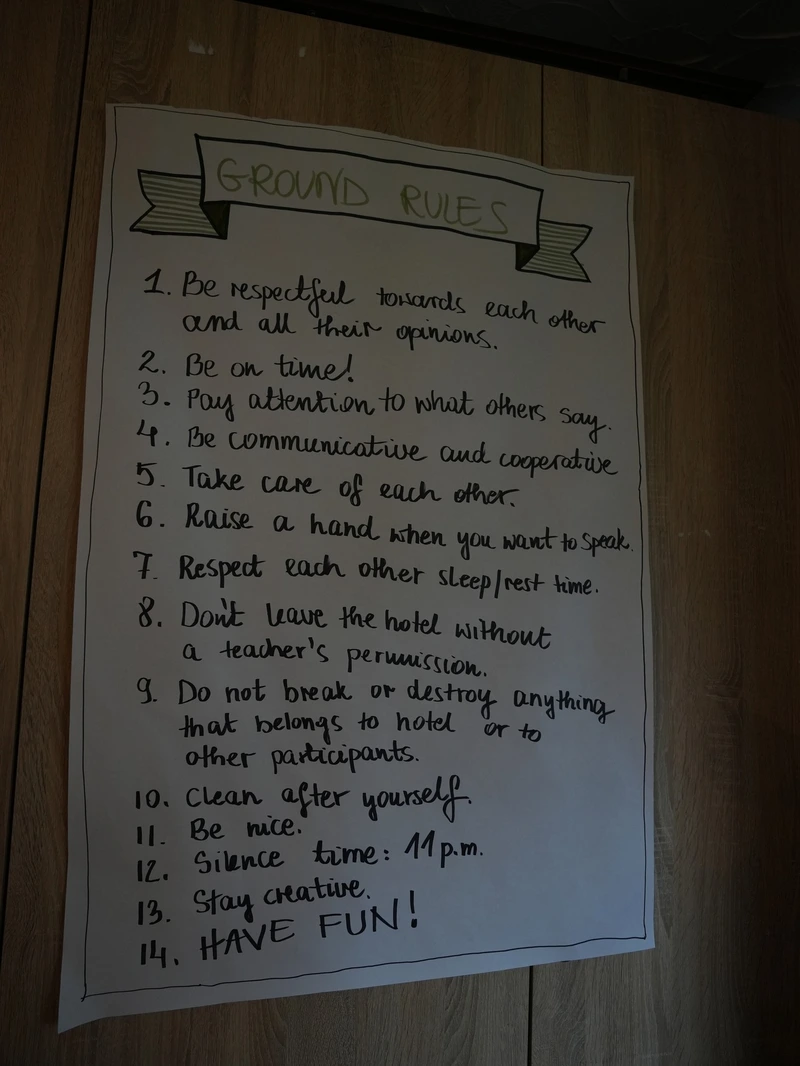 GROUND RULES
1. Be respectful towards each other
and all their opinions.
2. Be on time!
3. Pay attention to what others say.
4. Be communicative and cooperative
5. Take care of each other.
6. Raise a hand when you want to speak.
7. Respect each other sleep/rest time.
8. Don't leave the hotel without
a teacher's permission.
9. Do not break or destroy anything
that belongs to hotel or to
other participants.
10. Clean after yourself.
11. Be nice.
12. Silence time: 11 p.m.
13. Stay creative.
14. HAVE FUN!